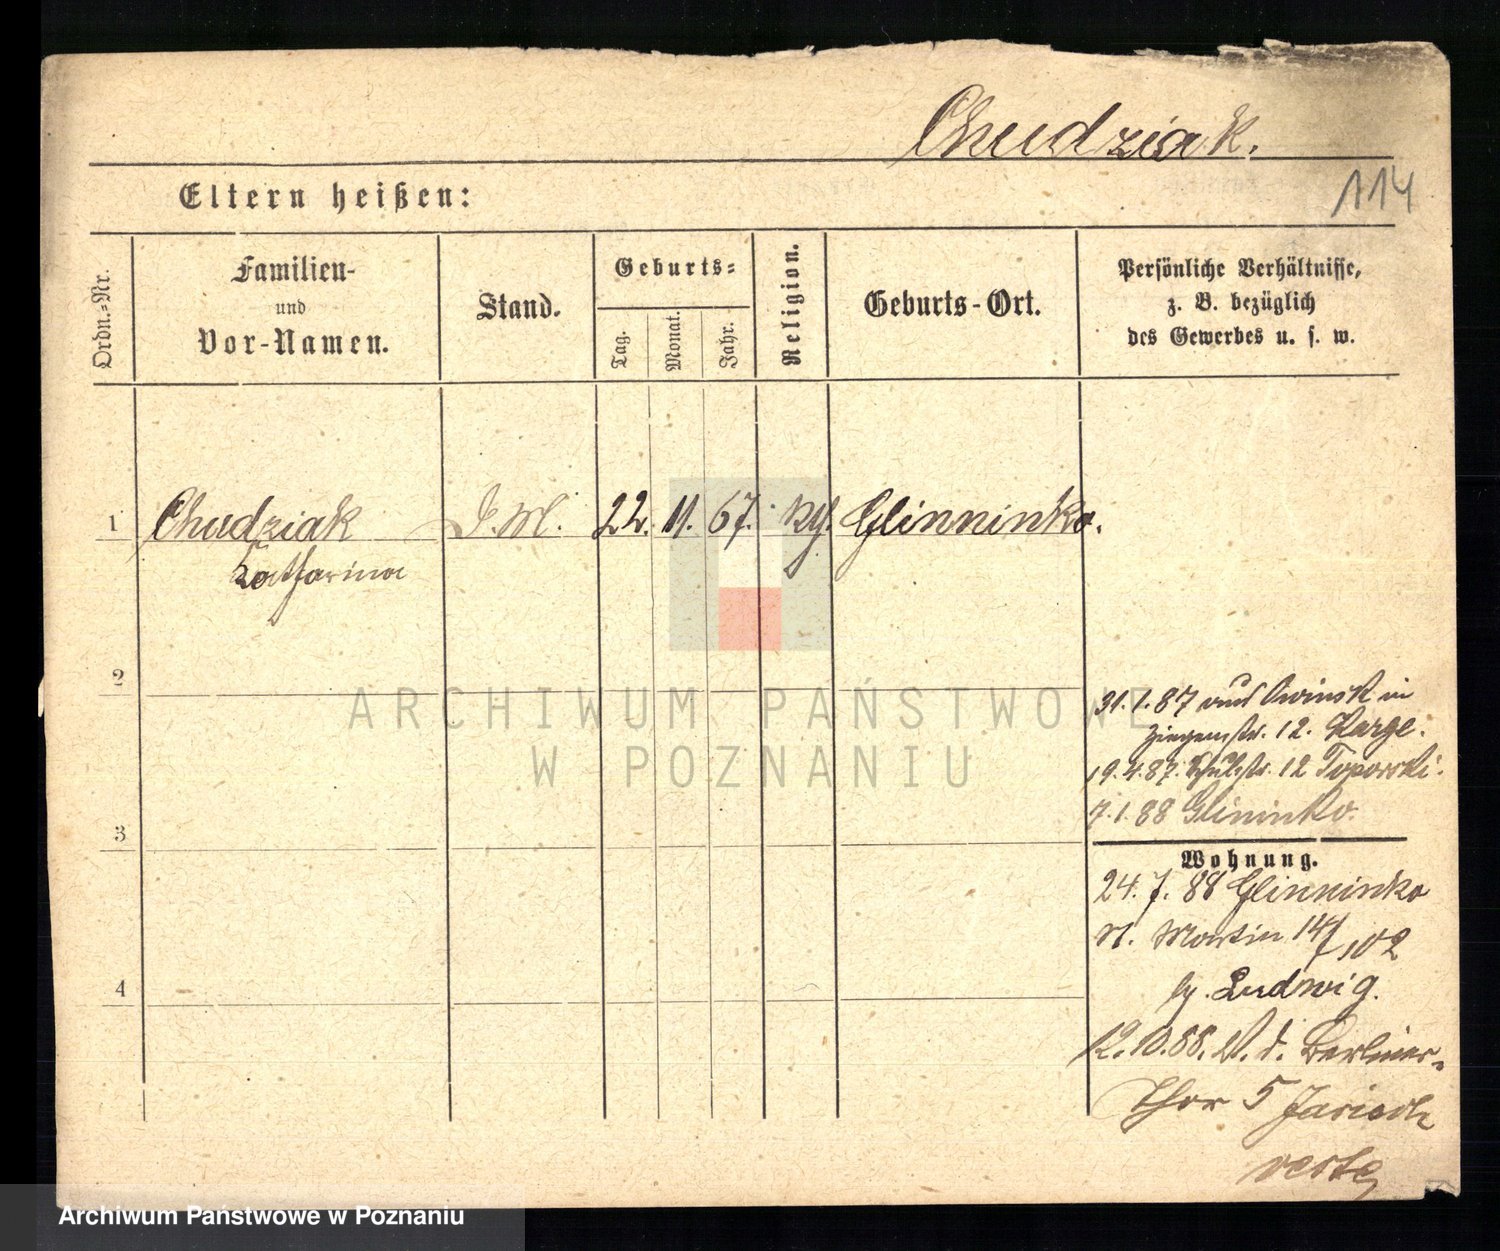 Chudziak.
114
Eltern heißen:
Ordn.-Nr.
Familien-
und
Vor-Namen.
Stand.
Geburts-
Tag.
Monat.
Jahr.
Religion.
Geburts-Ort.
Persönliche Verhältnisse,
z. B. bezüglich
des Gewerbes u. s. w.
1 Chudziak D. M. 22. 11. 67. Glinninko.
Katharina
2
31.1.87 aus Owinsk in
Ziegenstr. 12. Karge.
19.4.87. Schulstr. 12 Toporski.
7.1.88 Glininko.
3
Wohnung.
24.7.88 Glinninko
St. Martin 14/102
by. Ludwig.
4
12.10.88. V. d. Berliner-
Thor 5 Jarisch
verte
ARCHIWUM PAŃSTWOWE
W POZNANIU
Archiwum Państwowe w Poznaniu